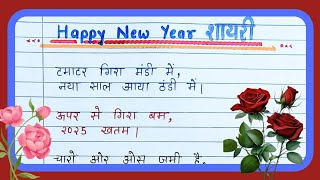 Happy New Year शायरी
टमाटर गिरा मंडी में,
नया साल आया ठंडी में।
ऊपर से गिरा बम,
२०२5 खतम।
चारो ओर ओस जमी है,